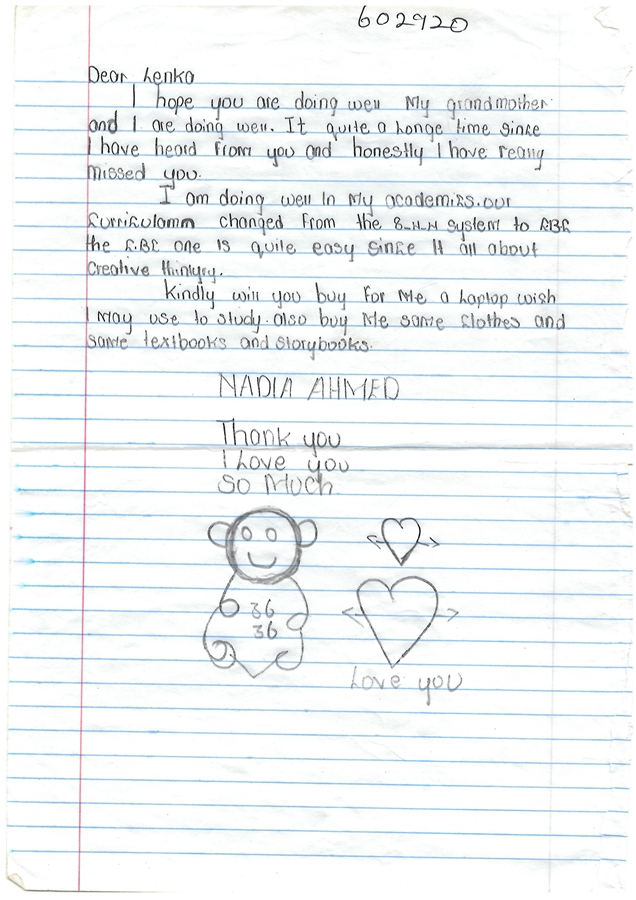 602920
Dear Lenka
I hope you are doing well My grandmother
and I are doing well. It quite a longe time since
I have heard from you and honestly I have really
missed you.
I am doing well In My academiks. our
Curriculamm changed from the 8-4-4 system to CBC
the C.BC one is quite easy since It all about
Creative thinkyry.
Kindly will you buy for Me a Laptop wish
I May use to study. also buy Me some Clothes and
some textbooks and storybooks.
NADIA AHMED
Thank you
I Love you
So Much
36
36
Love you